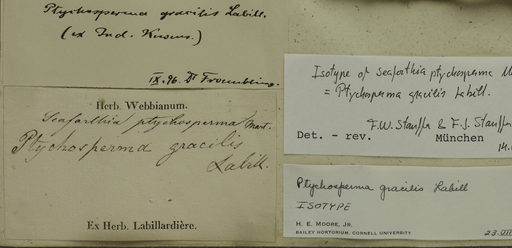 Ptychosperma gracilis Labill.
(ex Ind. Kewens.)
IX.96. Dr
Herb. Webbianum.
Seaforthia ptychosperma Mart.
Ptychosperma gracilis
Labill.
Ex Herb. Labillardière.
Isotype of Seaforthia ptychosperma
= Ptychosperma gracilis Labill.
F.W. & F.J.
Det. - rev. München
Ptychosperma gracilis Labill
ISOTYPE
H. E. MOORE, JR.
BAILEY HORTORIUM, CORNELL UNIVERSITY
23